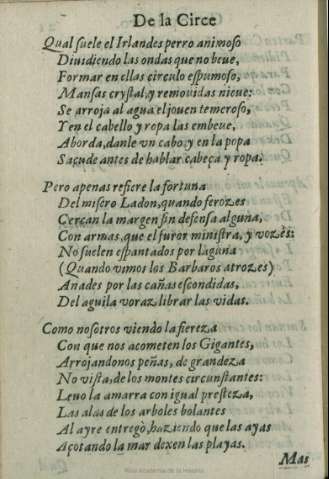 De la Circe
Qual suele el Irlandes perro animoso
Diuidiendo las ondas que no beue,
Formar en ellas circulo espumoso,
Mansas crystal, y remouidas nieue:
Se arroja al agua el jouen temeroso,
Y en el cabello y ropa las embeue,
Aborda, danle vn cabo, y en la popa
Sacude antes de hablar cabeça y ropa.
Pero apenas refiere la fortuna
Del misero Ladon, quando ferozes
Cercan la margen sin defensa alguna,
Con armas, que el furor ministra, y vozes:
No suelen espantados por laguna
(Quando vimos los Barbaros atrozes)
Anades por las cañas escondidas,
Del aguila voraz librar las vidas.
Como nosotros viendo la fiereza
Con que nos acometen los Gigantes,
Arrojandonos peñas, de grandeza
No vista, de los montes circunstantes:
Leuo la amarra con igual presteza,
Las alas de los arboles bolantes
Al ayre entregò, haziendo que las ayas
Açotando la mar dexen las playas.
Mas
Real Academia de la Historia